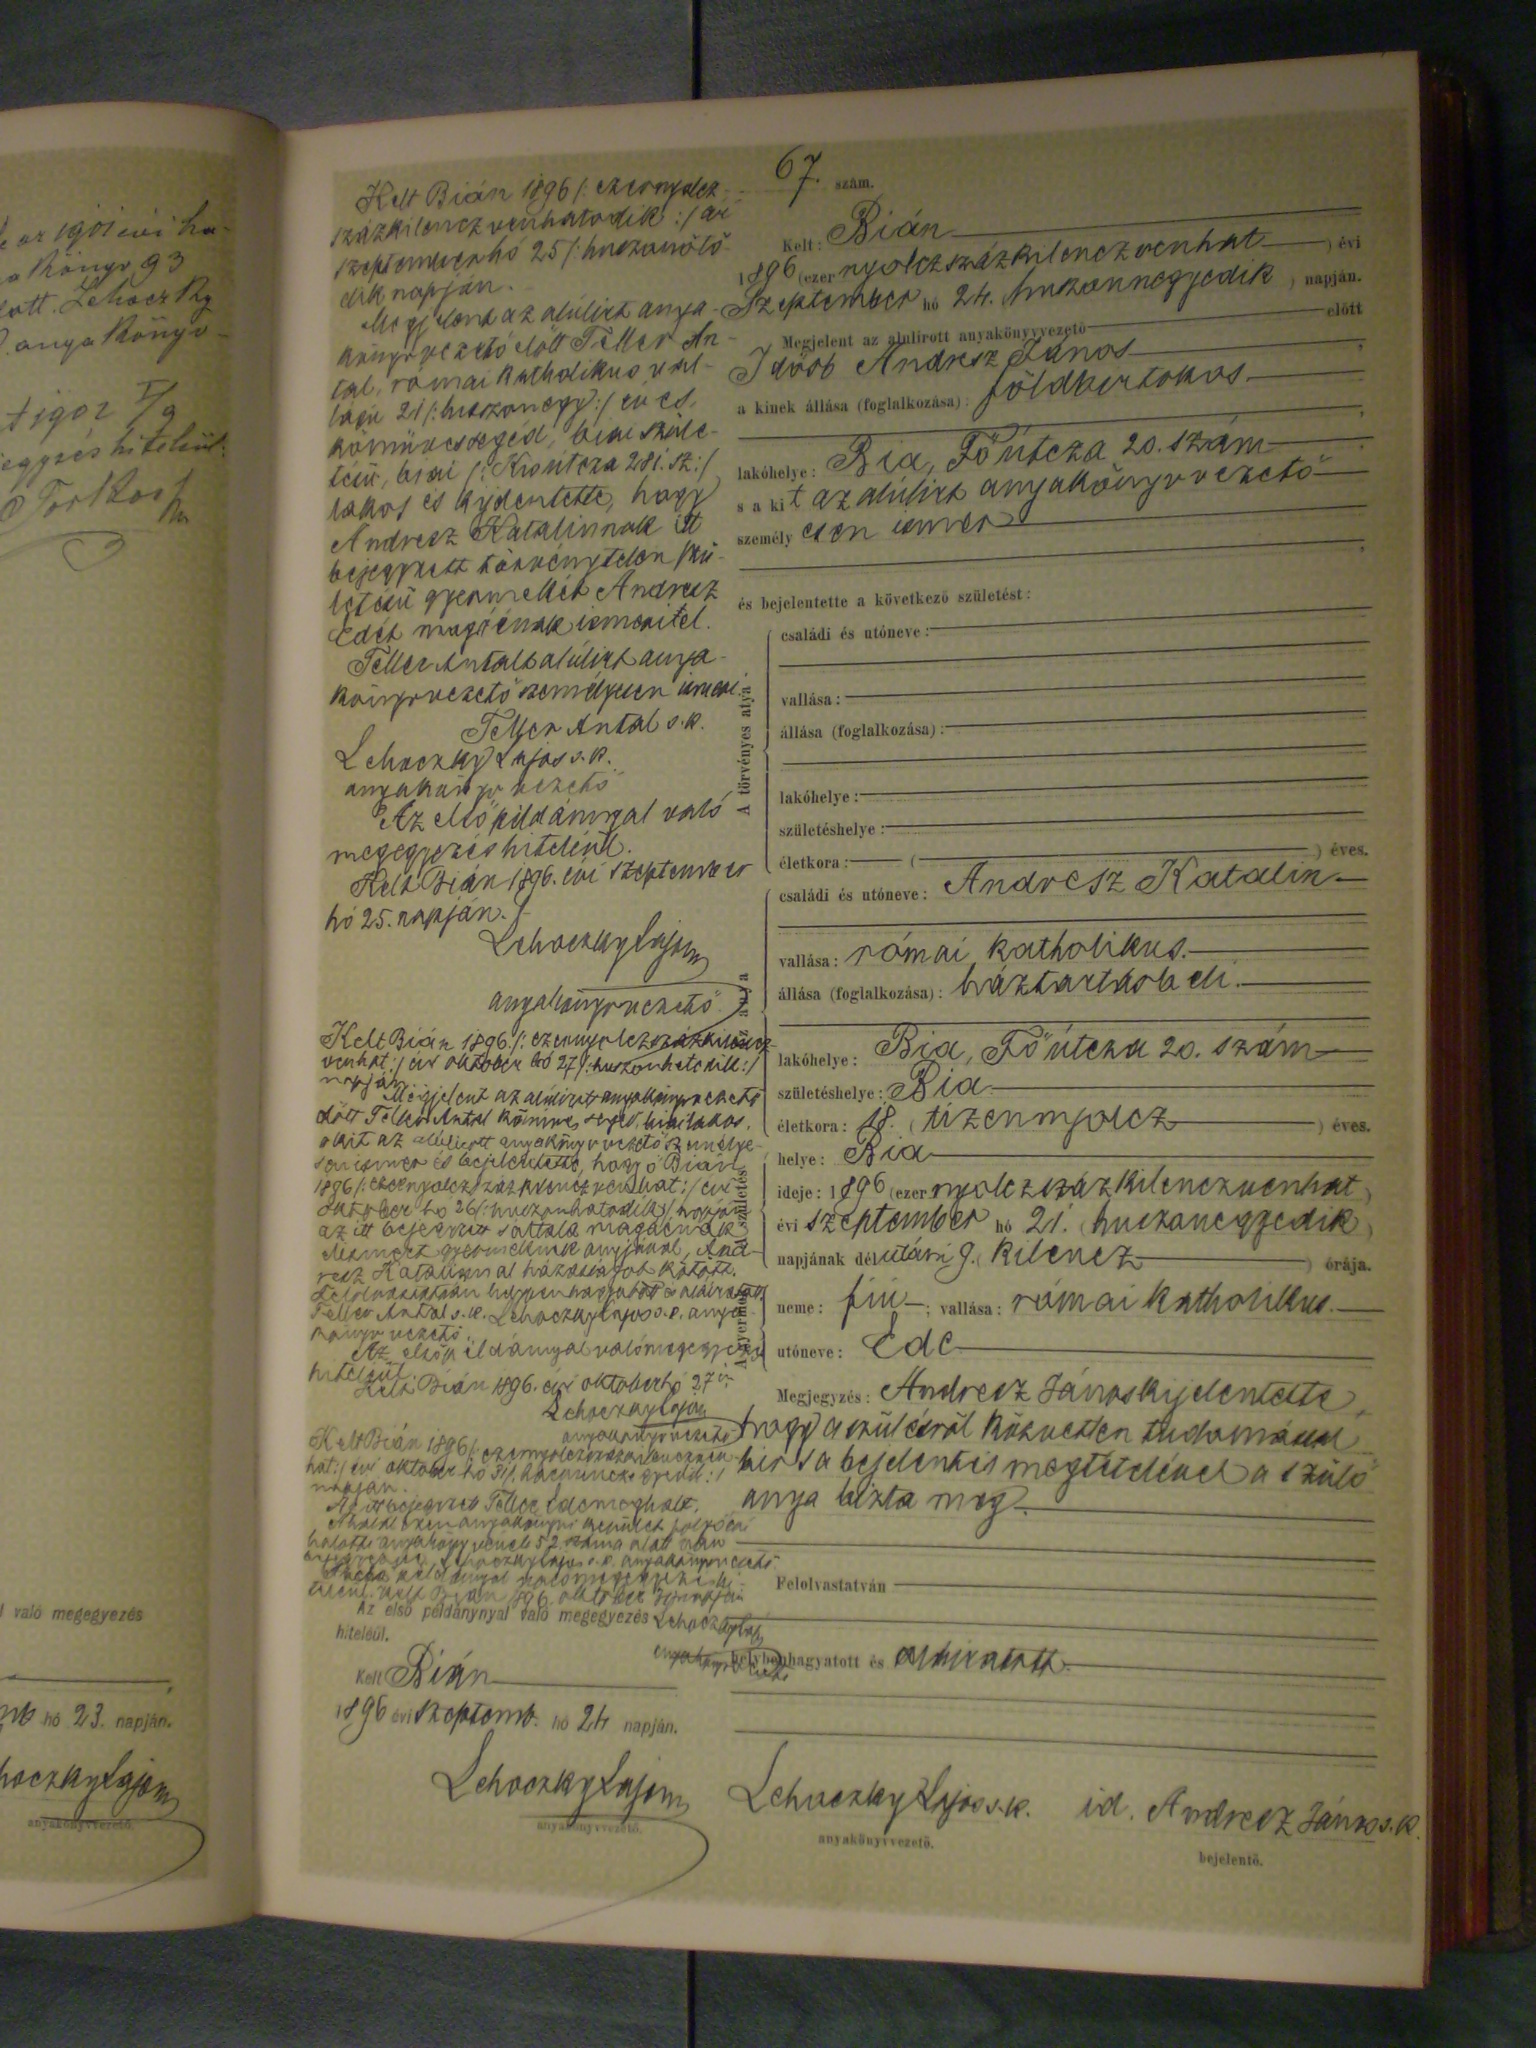 az 1901 évi ha-
könyv 93
Lehoczky
anyakönyv-
1902 I/9
hiteléül:
való megegyezés
hó 23. napján.
Lehoczky Lajos
anyakönyvvezető.
Kelt Bián 1896 /: ezernyolcz-
százkilenczvenhatodik :/ évi
szeptember hó 25 /: huszonötö-
dik napján.
Megjelent az alúlirt anya-
könyvvezető előtt Teller An-
tal, római katholikus val-
lásu 21 /: huszonegy :/ éves,
kőművessegéd, biai szüle-
tésü, biai /: Kisútcza 281. sz :/
lakos és kijelentette, hogy
Andresz Katalinnak itt
bejegyzett törvénytelen szü-
letésü gyermekét Andresz
Edét magáénak ismeri el.
Teller Antalt alúlirt anya-
könyvvezető személyesen ismeri.
Teller Antal s. k.
Lehoczky Lajos s. k.
anyakönyvvezető
Az első példánnyal való
megegyezés hiteléül.
Kelt Bián 1896. évi szeptember
hó 25. napján.
Lehoczky Lajos
anyakönyvvezető
Kelt Bián 1896 /: ezernyolczszázkilencz-
venhat :/ évi október hó 27 /: huszonhetedik :/
napján
Megjelent az alúlirt anyakönyvvezető
előtt Teller Antal kőmives segéd, biai lakos,
a kit az alúlirott anyakönyvvezető személye-
sen ismer és bejelentette, hogy ő Bián
1896 /: ezernyolczszázkilenczvenhat :/ évi
október hó 26 /: huszonhatodik :/ napján
az itt bejegyzett s általa magáénak
elismert gyermekének anyjával, And-
resz Katalinnal házasságot kötött.
Felolvastatván helybenhagyatott és aláiratott
Teller Antal s. k. Lehoczky Lajos s. k. anya-
könyvvezető.
Az első példánnyal való megegyezés
hiteléül.
Kelt Bián 1896. évi október hó 27 én
Lehoczky Lajos
anyakönyvvezető
Kelt Bián 1896 /: ezernyolczszázkilenczven-
hat :/ évi október hó 31 /: harminczegyedik :/
napján.
Az itt bejegyzett Teller Ede meghalt.
halotti anyakönyvének 52. száma alatt van
Lehoczky Lajos s. k. anyakönyvvezető
Kelt Bián 1896 október
Az első példánynyal való megegyezés
hiteléül.
Lehoczky Lajos
anyakönyvvezető
Kelt Bián
1896 évi szeptemb. hó 24 napján.
Lehoczky Lajos
anyakönyvvezető.
67. szám.
Kelt: Bián
1896 (ezer nyolczszázkilenczvenhat ) évi
Szeptember hó 24. (huszonnegyedik ) napján.
Megjelent az alulirott anyakönyvvezető előtt
Idősb Andresz János ,
a kinek állása (foglalkozása): földbirtokos
,
lakóhelye: Bia, Főútcza 20. szám ,
s a kit az alúlirt anyakönyvvezető
személyesen ismer
,
és bejelentette a következő születést:
A törvényes atya
családi és utóneve:
vallása:
állása (foglalkozása):
lakóhelye:
születéshelye:
életkora: ( ) éves.
az anya
családi és utóneve: Andresz Katalin
vallása: római katholikus.
állása (foglalkozása): háztartásbeli.
lakóhelye: Bia, Főútcza 20. szám
születéshelye: Bia
életkora: 18. ( tizennyolcz ) éves.
A születés
helye: Bia
ideje: 1896 (ezer nyolczszázkilenczvenhat )
évi szeptember hó 21. (huszonegyedik )
napjának délutáni 9. ( kilencz ) órája.
A gyermek
neme: fiú ; vallása: római katholikus.
utóneve: Ede
Megjegyzés: Andresz János kijelentette,
hogy a szülésről közvetlen tudomással
bir s a bejelentés megtételével a szülő
anya bizta meg.
Felolvastatván
helybenhagyatott és aláiratott.
Lehoczky Lajos s. k.
anyakönyvvezető.
id. Andresz János s. k.
bejelentő.